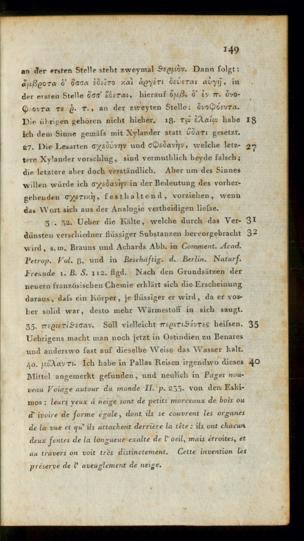 149
an der ersten Stelle steht zweymal θερμὸν. Dann folgt:
ἄμβροτα δ' ὅσσα ἐδεῖτο καὶ ἀργέτι δεύεται αὐγῇ, in
der ersten Stelle ὅσσ' ἔδεται, hierauf ὄμβ. δ' ἐν π. δνο-
φόεντα τε ῥ. τ., an der zweyten Stelle: δνοφόεντα.
Die übrigen gehören nicht hieher. 18. τῷ ἐλαίῳ habe 18
ich dem Sinne gemäſs mit Xylander statt ὕδατι gesetzt.
27. Die Lesarten σχεδύνην und σφεδανὴν, welche letz- 27
tere Xylander vorschlug, sind vermuthlich beyde falsch;
die letztere aber doch verständlich. Aber um des Sinnes
willen würde ich σχεδανὴν in der Bedeutung des vorher-
gehenden σχετικὴ, festhaltend, vorziehen, wenn
das Wort sich aus der Analogie vertheidigen lieſse.
31. 32. Ueber die Kälte, welche durch das Ver- 31
dünsten verschiedner flüssiger Substanzen hervorgebracht 32
wird, s. m. Brauns und Achards Abh. in Comment. Acad.
Petrop. Vol. 8, und in Beschäftig. d. Berlin. Naturf.
Freunde 1. B. S. 112. flgd. Nach den Grundsätzen der
neuern französischen Chemie erklärt sich die Erscheinung
daraus, daſs ein Körper, je flüssiger er wird, da er vor-
her solid war, desto mehr Wärmestoff in sich saugt.
35. περιτιθεῖσαν. Soll vielleicht περιτιθέντες heiſsen. 35
Uebrigens macht man noch jetzt in Ostindien zu Benares
und anderswo fast auf dieselbe Weise das Wasser kalt.
40. μέλαντι. Ich habe in Pallas Reisen irgendwo dieses 40
Mittel angemerkt gefunden, und neulich in Pages nou-
veau Voiage autour du monde II. p. 233. von den Eski-
mos: leurs yeux à neige sont de petits morceaux de bois ou
d' ivoire de forme égale, dont ils se couvrent les organes
de la vue et qu' ils attachent derriere la tête: ils ont chacun
deux fentes de la longueur exalte de l' oeil, mais étroites, et
au travers on voit très distinctement. Cette invention les
préserve de l' aveuglement de neige.